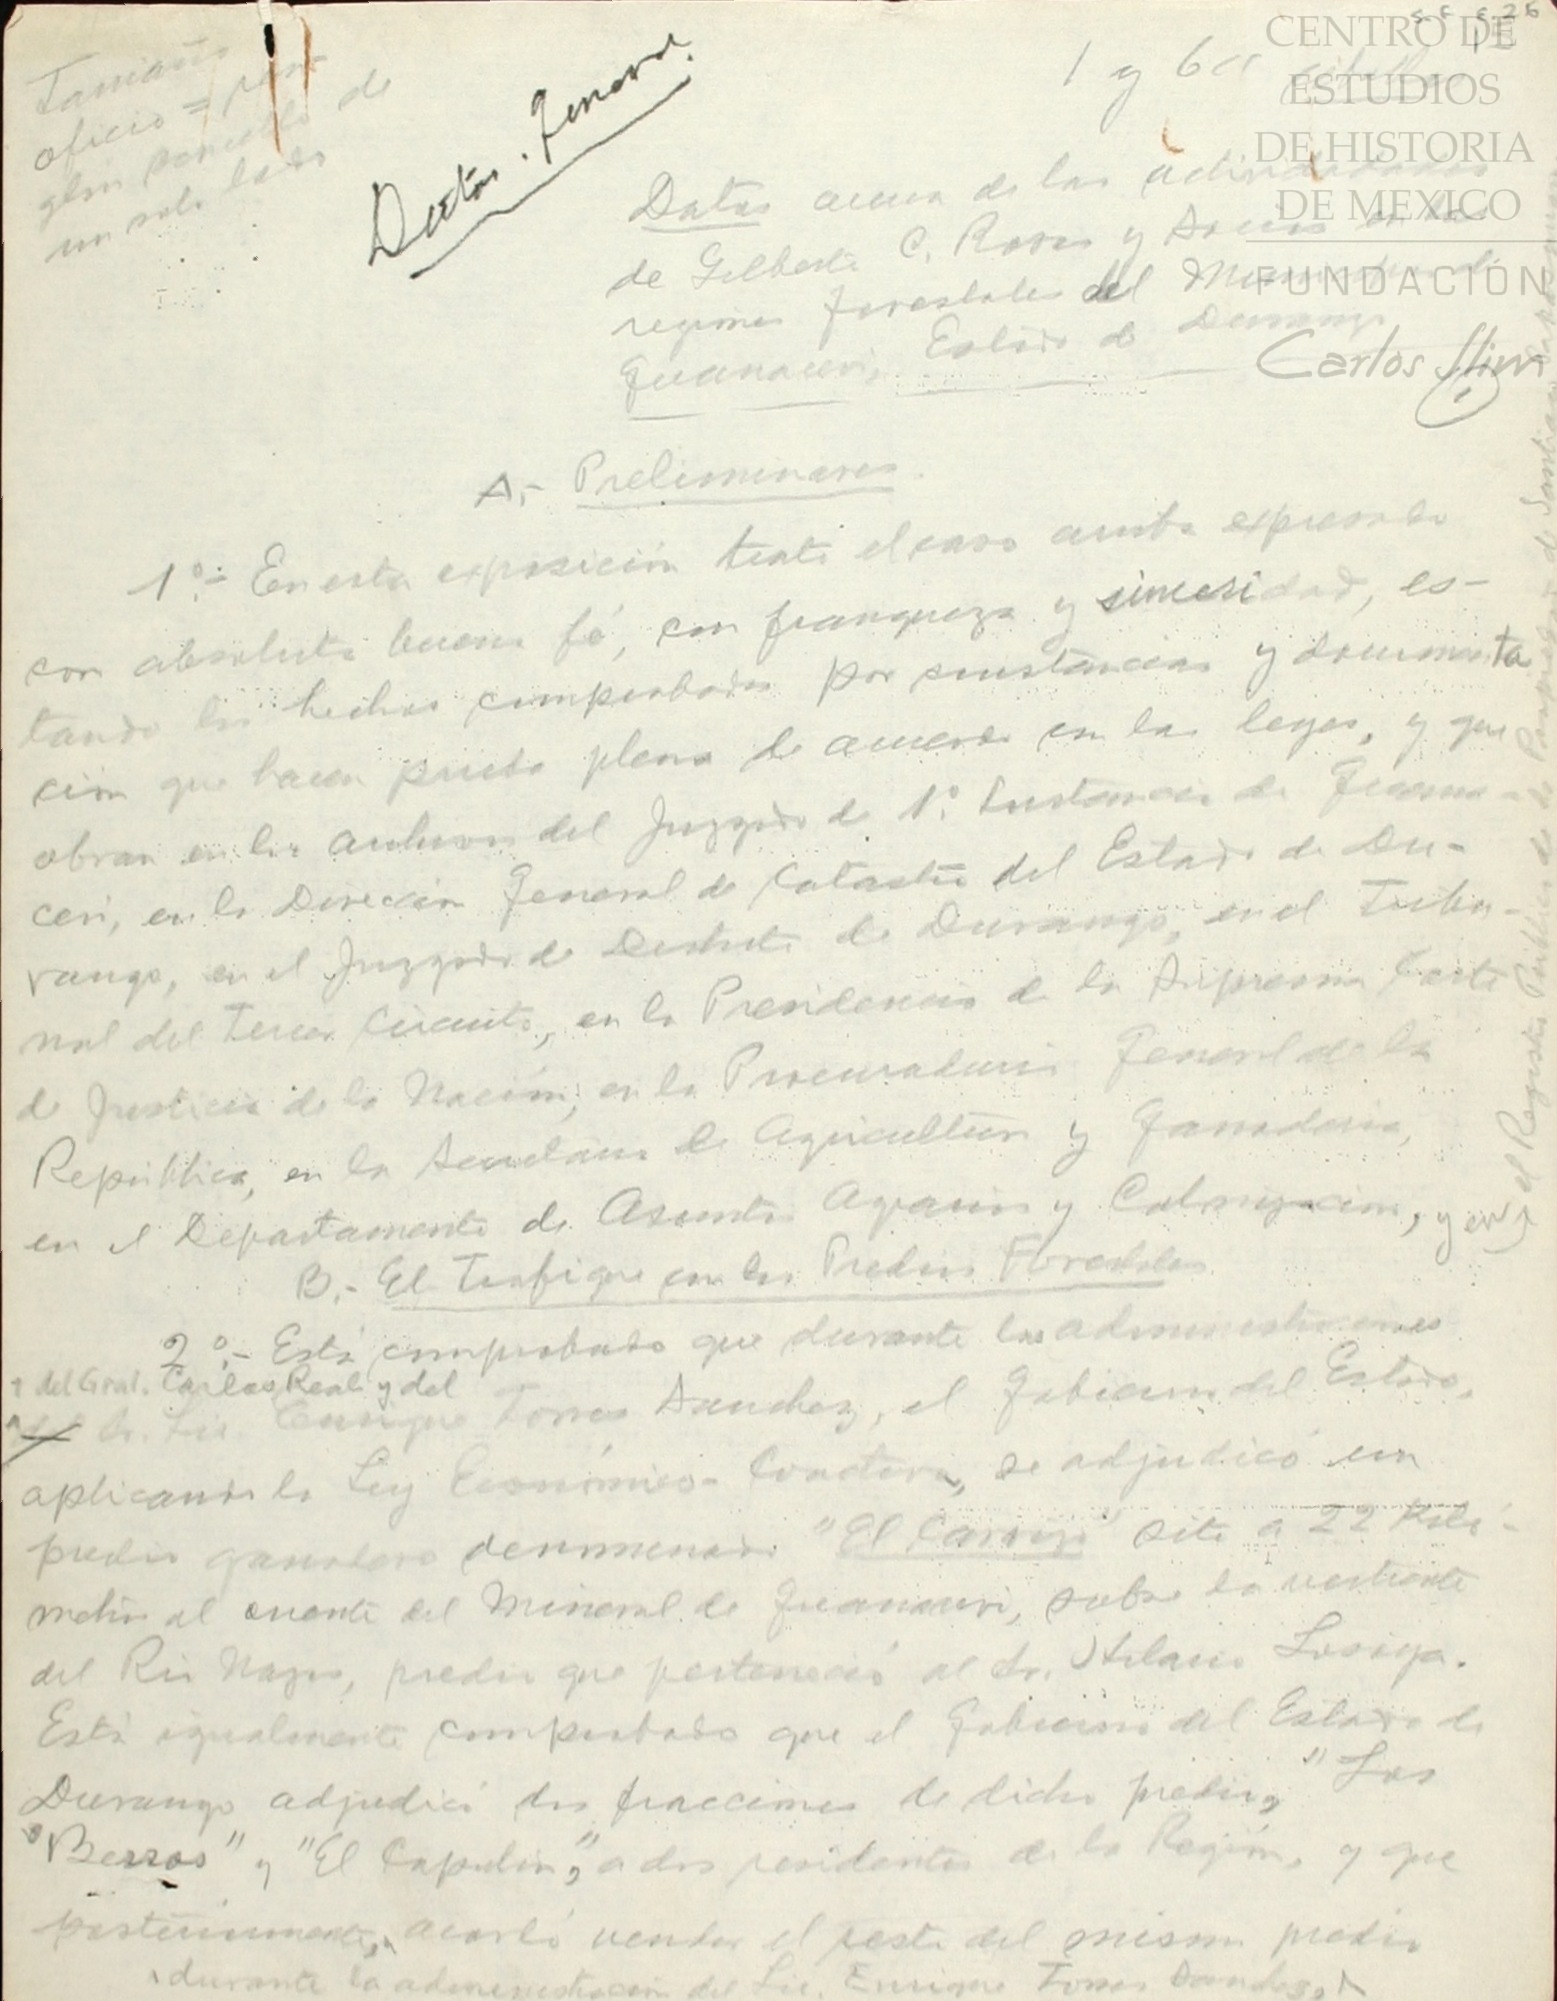 Tamaño
oficio = ren-
glón sencillo de
un solo lado
1 y 6
CENTRO DE
ESTUDIOS
DE HISTORIA
DE MEXICO
FUNDACIÓN
Carlos Slim
Datos acerca de las actividades
de Gilberto C. Rosas y Socios en las
regiones forestales del Municipio de
Guanaceví, Estado de Durango
A.- Preliminares.
1º.- En esta exposición trato el caso arriba expresado
con absoluta buena fé, con franqueza y sinceridad, es-
tando los hechos comprobados por constancias y documenta
ción que hacen prueba plena de acuerdo con las leyes, y que
obran en los archivos del Juzgado de 1ª. Instancia de Guana-
ceví, en la Dirección General de Catastro del Estado de Du-
rango, en el Juzgado de Distrito de Durango, en el Tribu-
nal del Tercer Circuito, en la Presidencia de la Suprema Corte
de Justicia de la Nación, en la Procuraduría General de la
República, en la Secretaría de Agricultura y Ganadería,
en el Departamento de Asuntos Agrarios y Colonización, y en
el Registro Público de la Propiedad de Santiago
B.- El Trafique con los Predios Forestales
2º.- Está comprobado que durante las administraciones
del Gral. Carlos Real y del
Sr. Lic. Enrique Torres Sanchez, el Gobierno del Estado,
aplicando la Ley Económico-Coactiva, se adjudicó un
predio ganadero denominado "El Carrizo" sito a 22 Kiló-
metros al oriente del Mineral de Guanaceví, sobre la vertiente
del Río Nazas, predio que perteneció al Sr. Hilario Lozoya.
Está igualmente comprobado que el Gobierno del Estado de
Durango adjudicó dos fracciones de dicho predio, "Los
Berros" y "El Capulín," a dos residentes de la Región, y que
posteriormente, acordó vender el resto del mismo predio
durante la administración del Lic. Enrique Torres Sanchez,